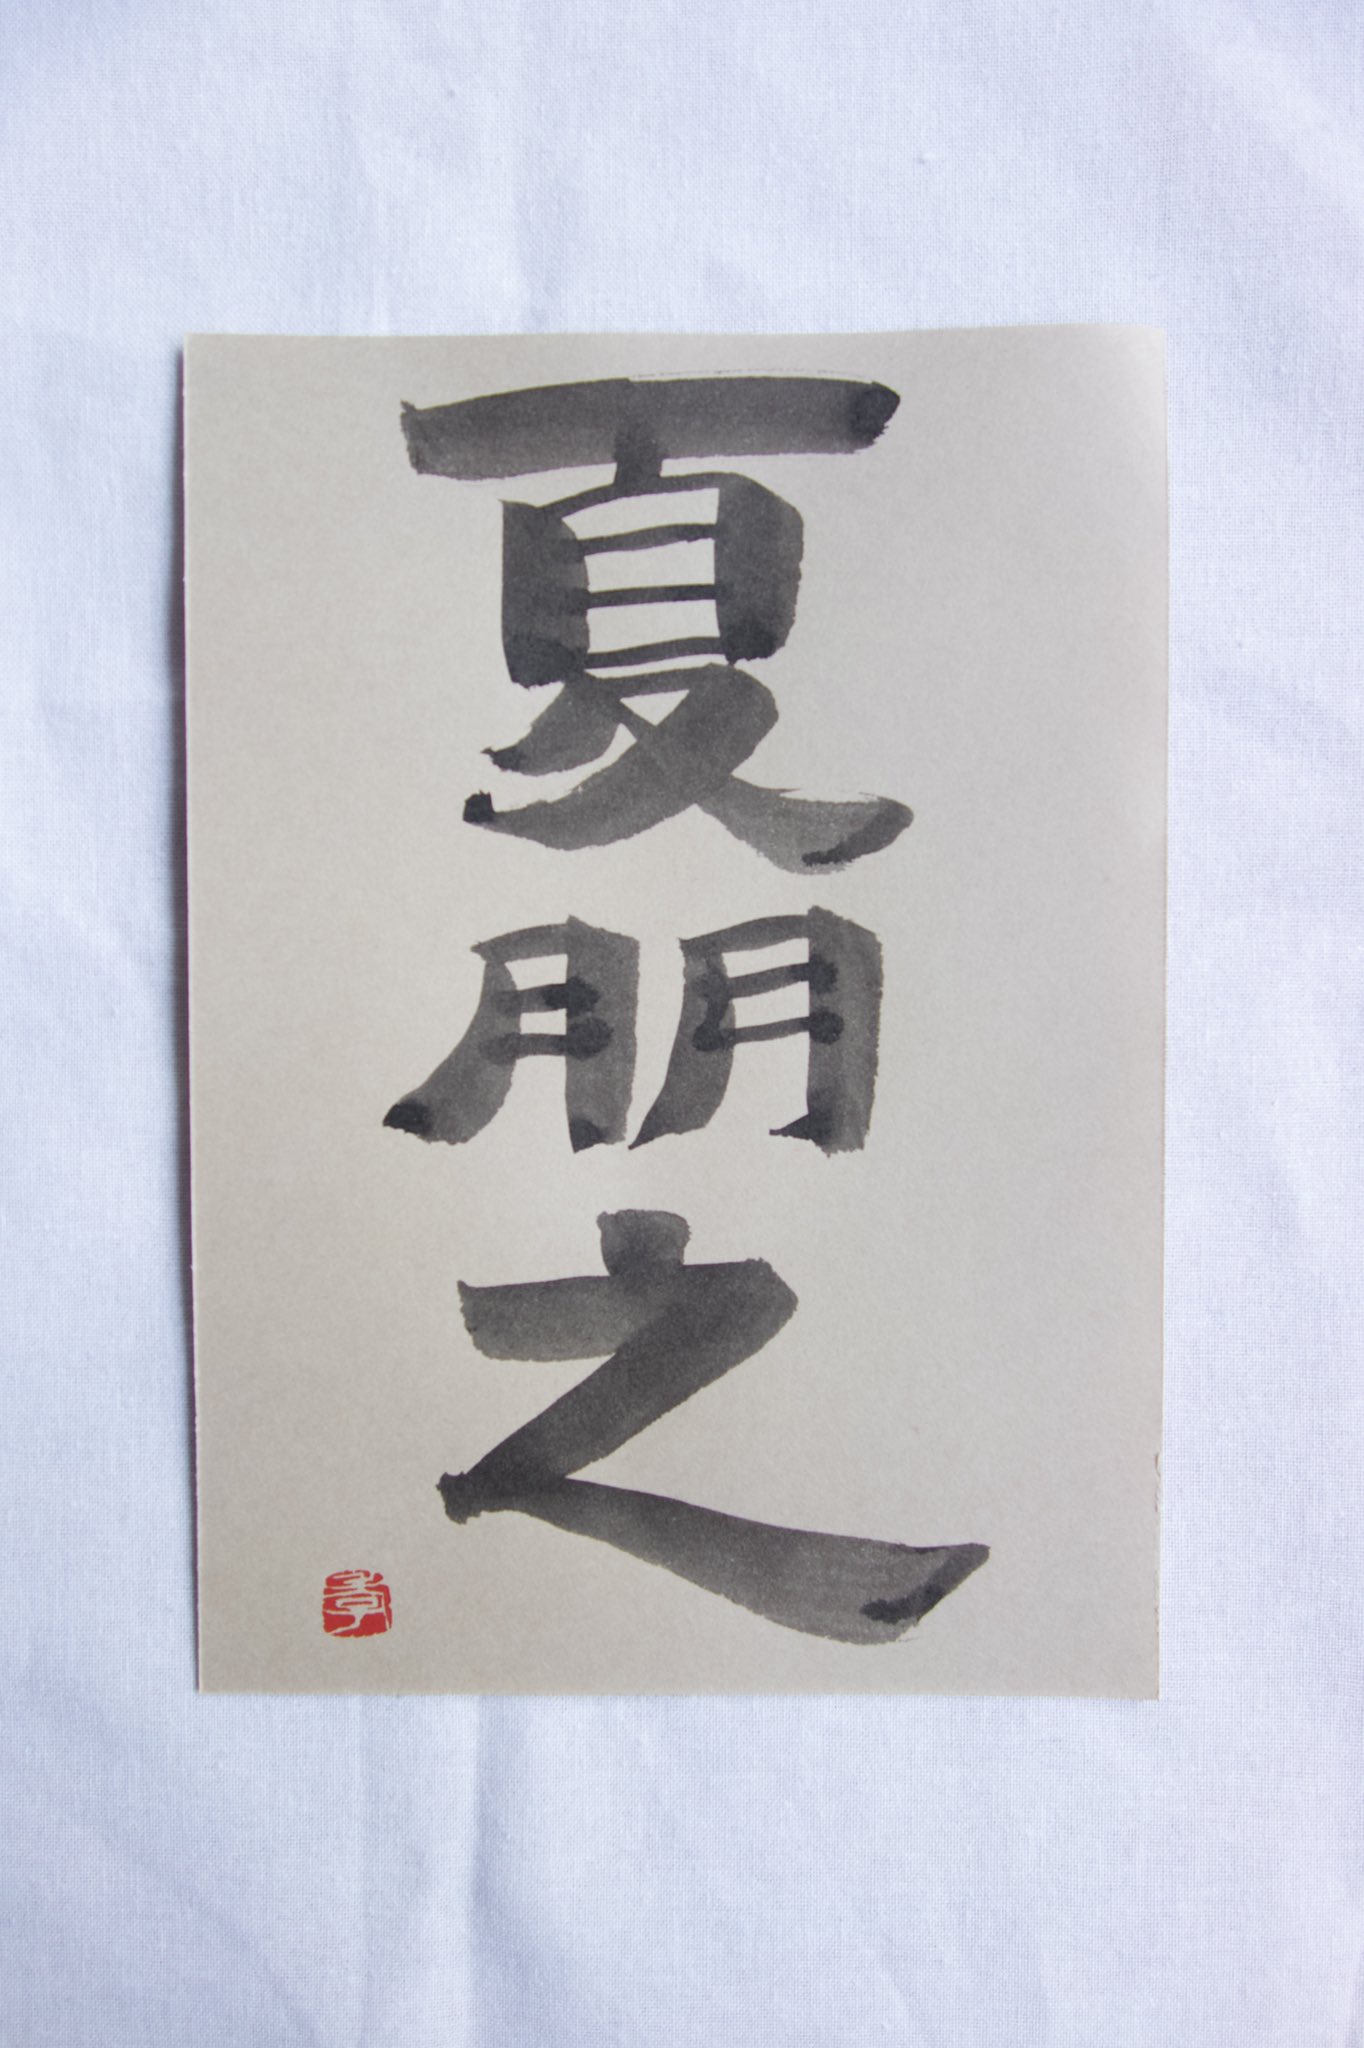 夏朋之